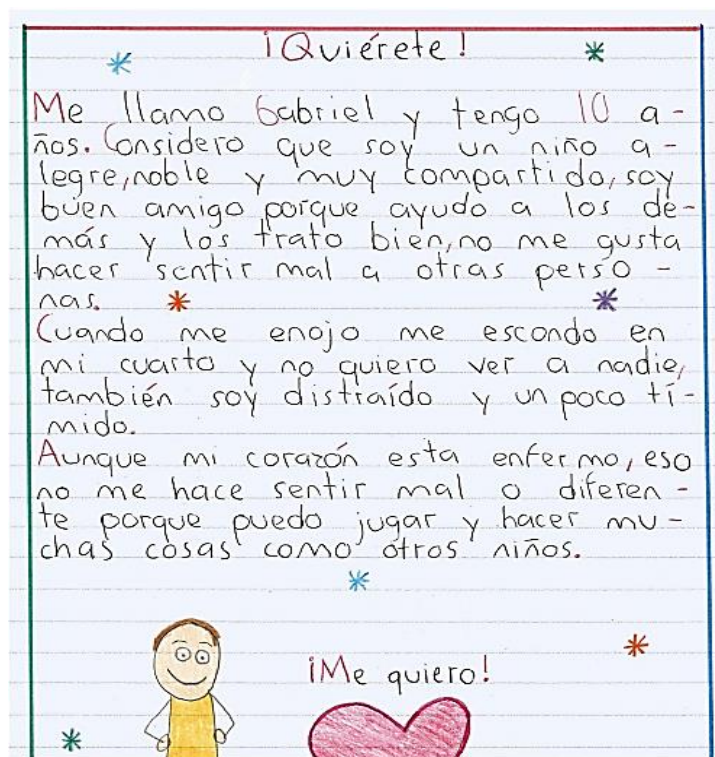 ¡Quiérete!
Me llamo Gabriel y tengo 10 a-
ños. Considero que soy un niño a-
legre, noble y muy compartido, soy
buen amigo porque ayudo a los de-
más y los trato bien, no me gusta
hacer sentir mal a otras perso-
nas.
Cuando me enojo me escondo en
mi cuarto y no quiero ver a nadie,
también soy distraído y un poco tí-
mido.
Aunque mi corazón esta enfermo, eso
no me hace sentir mal o diferen-
te porque puedo jugar y hacer mu-
chas cosas como otros niños.
¡Me quiero!